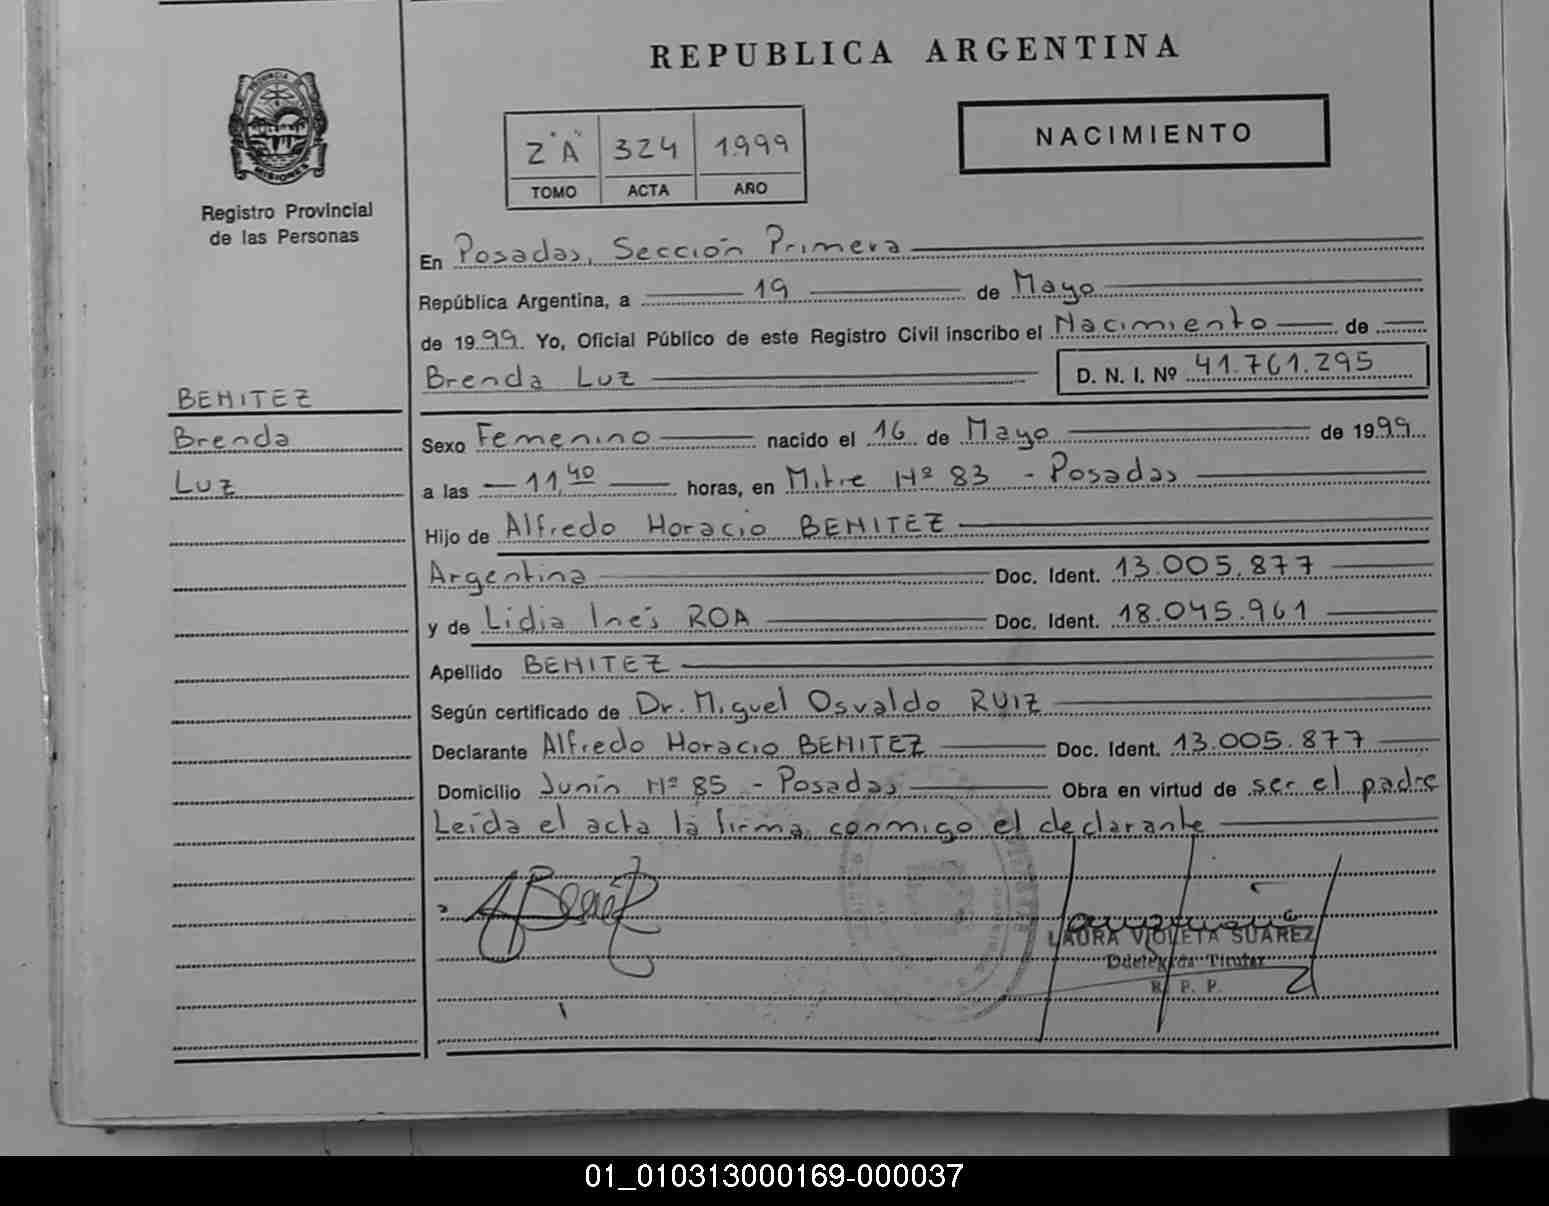 REPUBLICA ARGENTINA
PROVINCIA DE MISIONES
Registro Provincial
de las Personas
2 "A" 324 1.999
TOMO ACTA AÑO
NACIMIENTO
En Posadas, Sección Primera
República Argentina, a 19 de Mayo
de 1999. Yo, Oficial Público de este Registro Civil inscribo el Nacimiento de
Brenda Luz D. N. I. Nº 41.761.295
BENITEZ
Brenda
Luz
Sexo Femenino nacido el 16 de Mayo de 1999
a las 11,40 horas, en Mitre Nº 83 - Posadas
Hijo de Alfredo Horacio BENITEZ
Argentina Doc. Ident. 13.005.877
y de Lidia Inés ROA Doc. Ident. 18.045.961
Apellido BENITEZ
Según certificado de Dr. Miguel Osvaldo RUIZ
Declarante Alfredo Horacio BENITEZ Doc. Ident. 13.005.877
Domicilio Junín Nº 85 - Posadas Obra en virtud de ser el padre
Leída el acta la firma conmigo el declarante
LAURA VIOLETA SUAREZ
Titular
R. P. P.
01_010313000169-000037